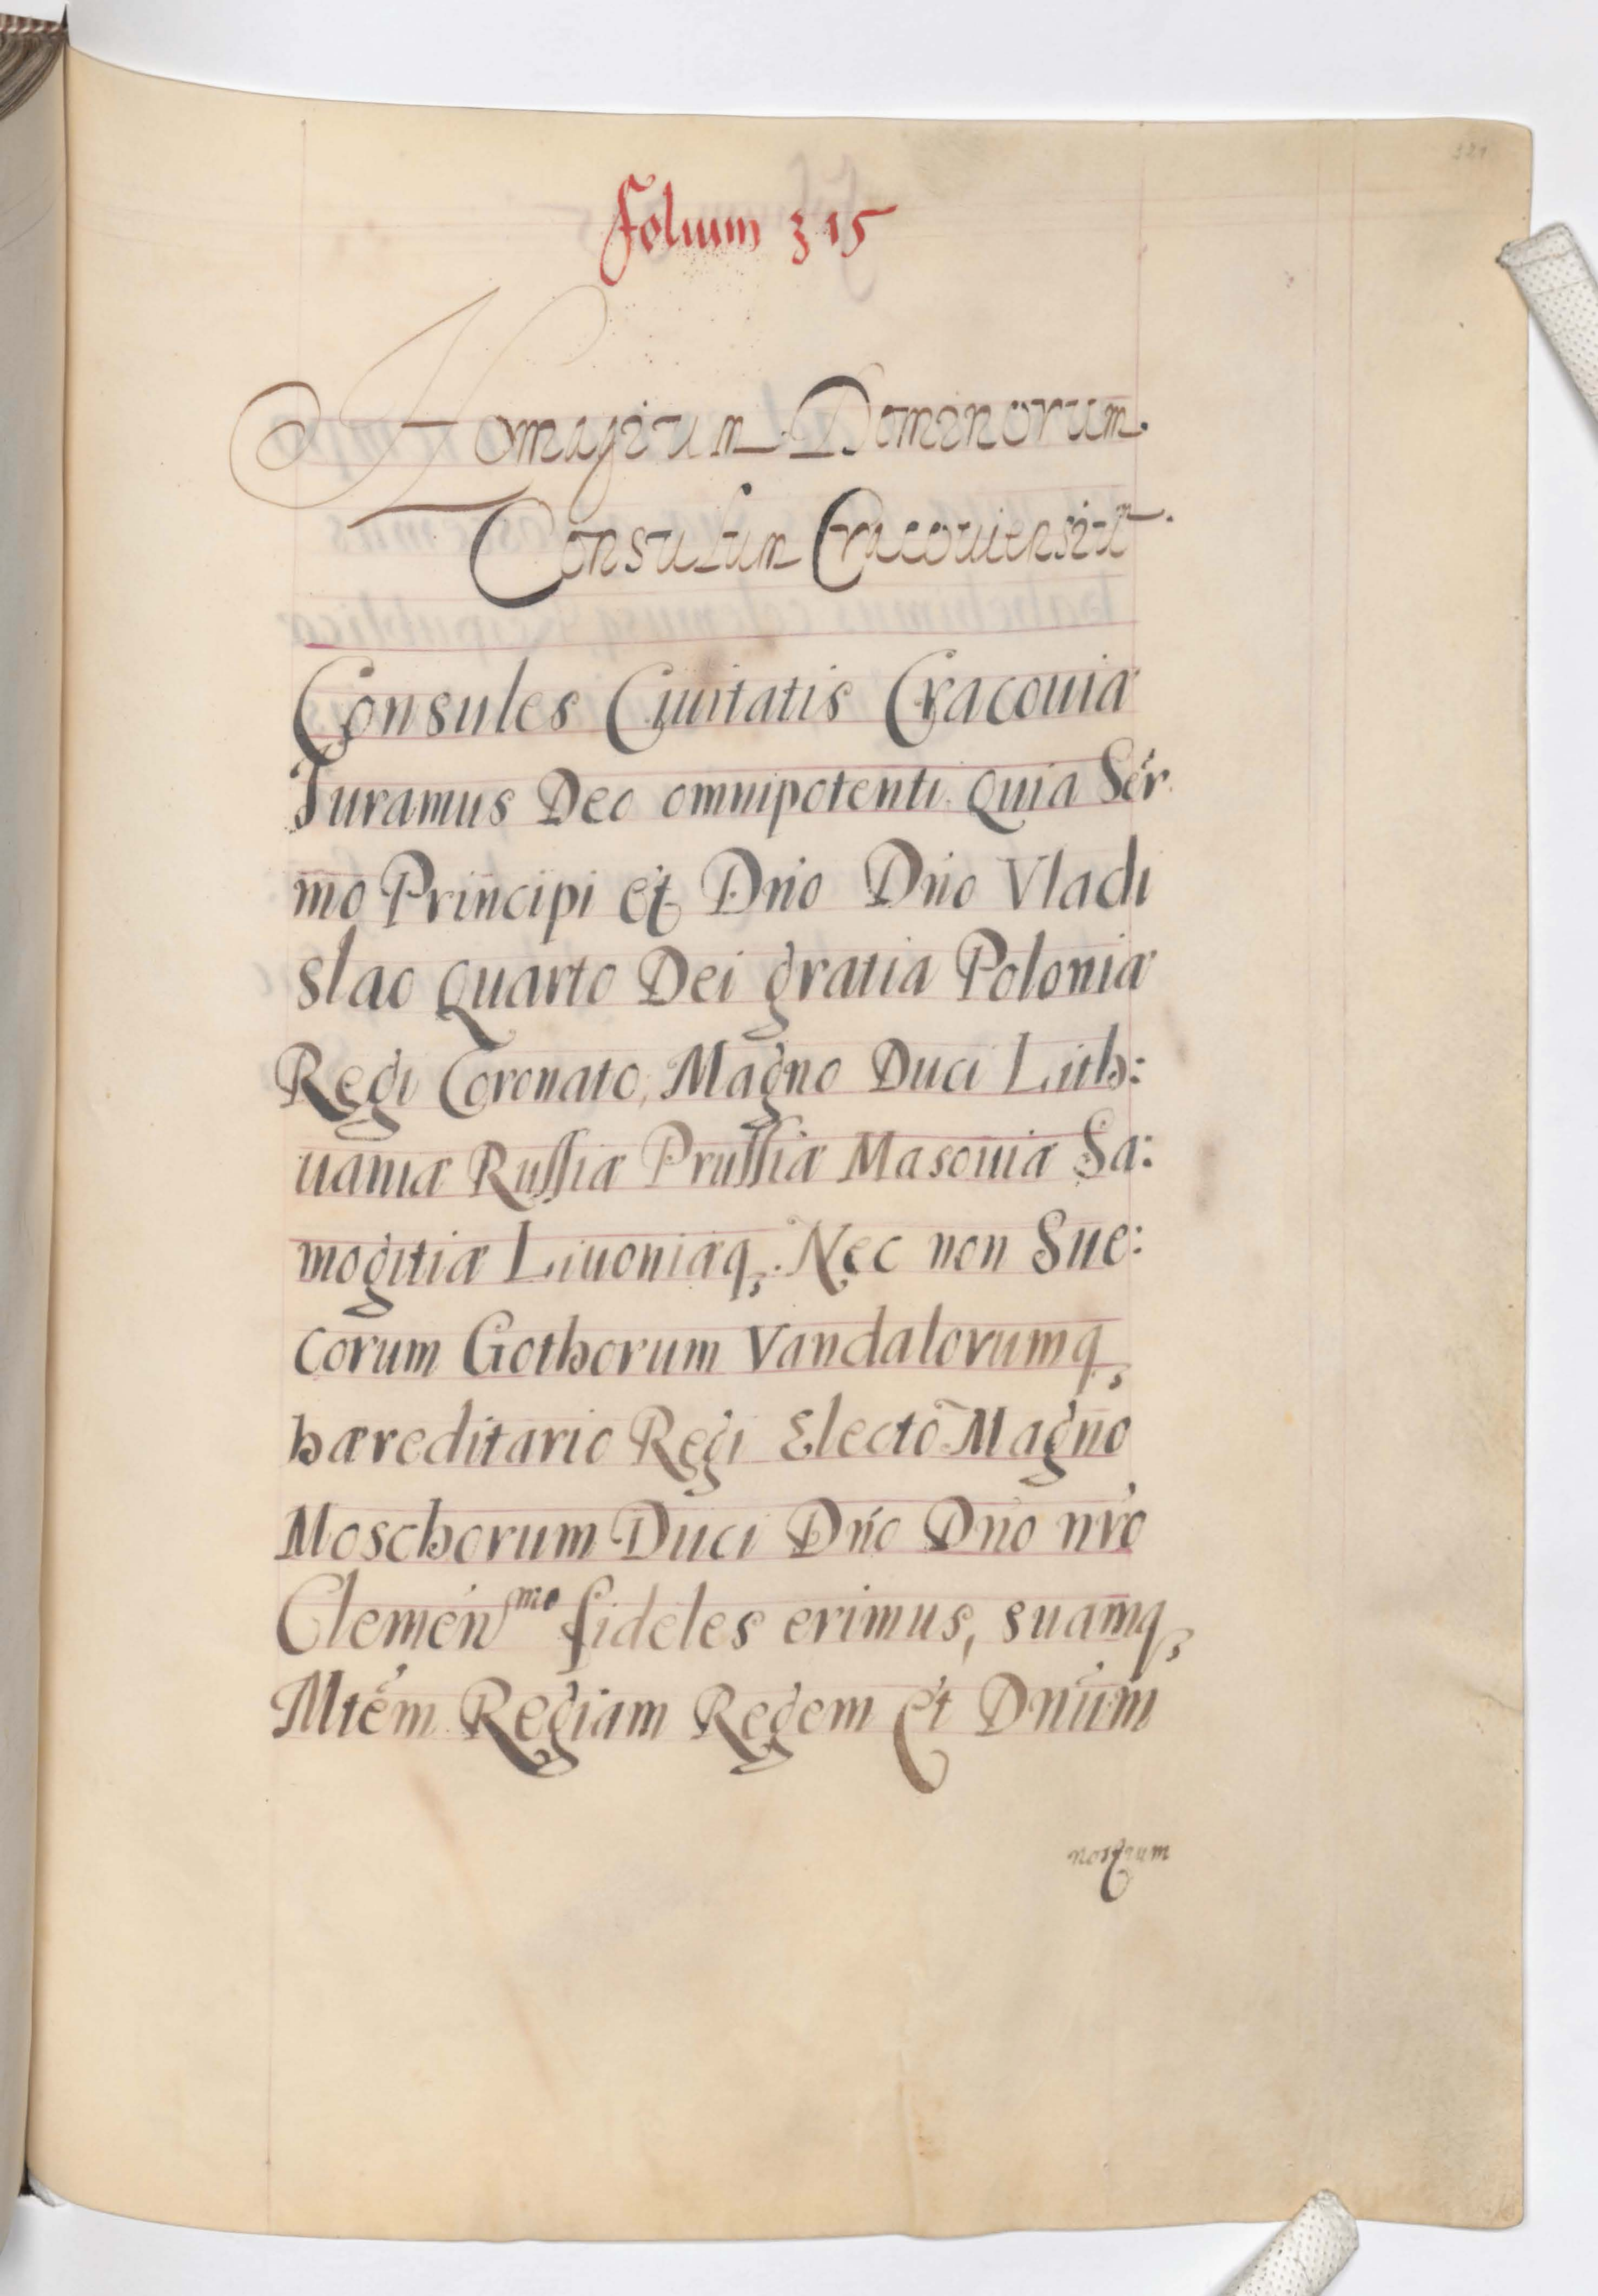 321
Folium 315
Homagium Dominorum.
Consulum Cracouiensiũ.
Consules Ciuitatis Cracouiæ
Juramus Deo omnipotenti. Quia Ser
mo Principi et Dño Dño Vladi
slao Quarto Dei gratia Poloniæ
Regi Coronato, Magno Duci Lith:
uaniæ Russiæ Prussiæ Masouiæ Sa:
mogitiæ Liuoniæq;. Nec non Sue:
corum Gothorum Vandalorumq;
hæreditario Regi Electo Magno
Moschorum Duci Dño Dño nro
Clemen mo fideles erimus, suamq;
Mtem Regiam Regem et Dnum
nostrum